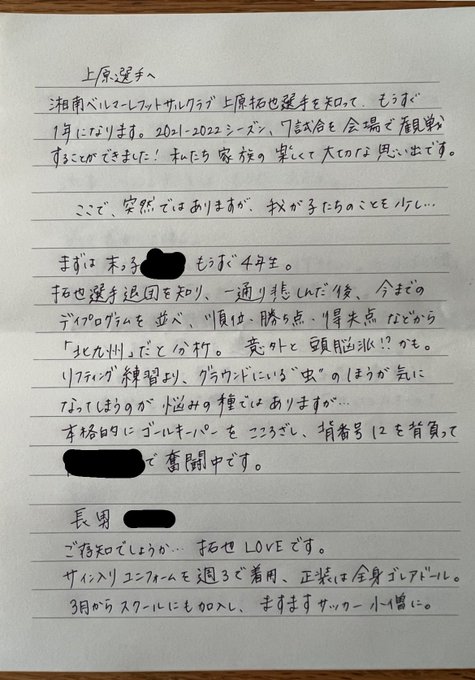 上原選手へ
湘南ベルマーレフットサルクラブ 上原拓也選手を知って、もうすぐ
1年になります。2021-2022シーズン、7試合を会場で観戦
することができました! 私たち家族の楽しくて大切な思い出です。
ここで、突然ではありますが、我が子たちのことを少し…
まずは末っ子 もうすぐ4年生。
拓也選手退団を知り、一通り悲しんだ後、今までの
ディプログラムを並べ、順位・勝ち点・得失点などから
「北九州」だと分析。 意外と頭脳派!?かも。
リフティング練習より、グラウンドにいる"虫"のほうが気に
なってしまうのが悩みの種ではありますが…
本格的にゴールキーパーをこころざし、背番号12を背負って
で奮闘中です。
長男
ご存知でしょうか… 拓也LOVEです。
サイン入りユニフォームを週3で着用、正装は全身ゴレアドール。
3月からスクールにも加入し、ますますサッカー小僧に。